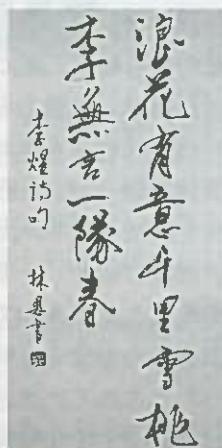 浪花有意千里雪桃
李無言一隊春
李煜詩句
林書